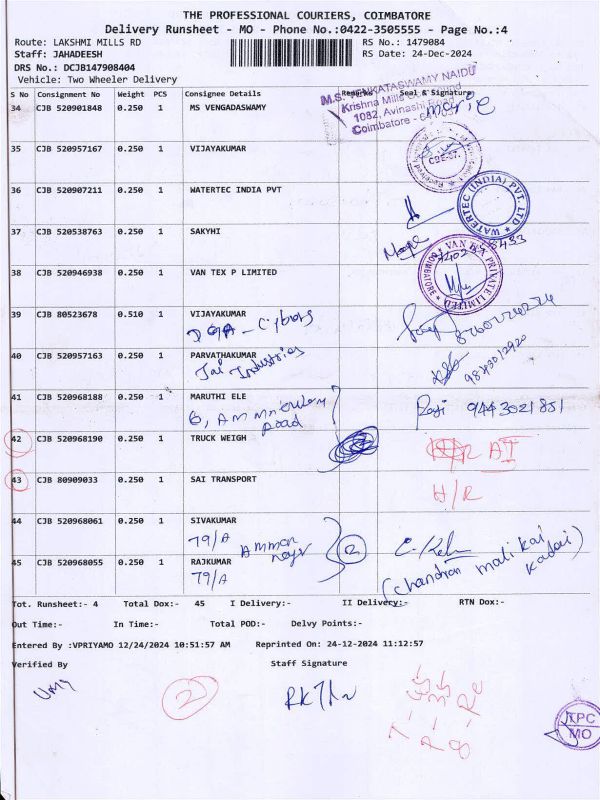 THE PROFESSIONAL COURIERS, COIMBATORE
Delivery Runsheet - MO - Phone No.:0422-3505555 - Page No.:4
Route: LAKSHMI MILLS RD RS No.: 1479084
Staff: JAHADEESH RS Date: 24-Dec-2024
DRS No.: DCJB147908404
Vehicle: Two Wheeler Delivery
S No Consignment No Weight PCS Consignee Details Seal & Signature
34 CJB 520901848 0.250 1 MS VENGADASWAMY
M.S. VENKATASWAMY NAIDU
Krishna Mills Compound
1082, Avinashi Road
Coimbatore
35 CJB 520957167 0.250 1 VIJAYAKUMAR
CBE-37.
36 CJB 520907211 0.250 1 WATERTEC INDIA PVT
WATERTEC (INDIA) PVT. LTD
37 CJB 520538763 0.250 1 SAKYHI
38 CJB 520946938 0.250 1 VAN TEX P LIMITED
39 CJB 80523678 0.510 1 VIJAYAKUMAR
40 CJB 520957163 0.250 1 PARVATHAKUMAR
Jai Industries
41 CJB 520968188 0.250 1 MARUTHI ELE
Road
Raji 9443021851
42 CJB 520968190 0.250 1 TRUCK WEIGH
43 CJB 80909033 0.250 1 SAI TRANSPORT
H/R
44 CJB 520968061 0.250 1 SIVAKUMAR
79/A Amman
2
45 CJB 520968055 0.250 1 RAJKUMAR
79/A
(Chandran malikai
kadai)
Tot. Runsheet:- 4 Total Dox:- 45 I Delivery:- II Delivery:- RTN Dox:-
Out Time:- In Time:- Total POD:- Delvy Points:-
Entered By :VPRIYAMO 12/24/2024 10:51:57 AM Reprinted On: 24-12-2024 11:12:57
Verified By Staff Signature
2
TPC
MO